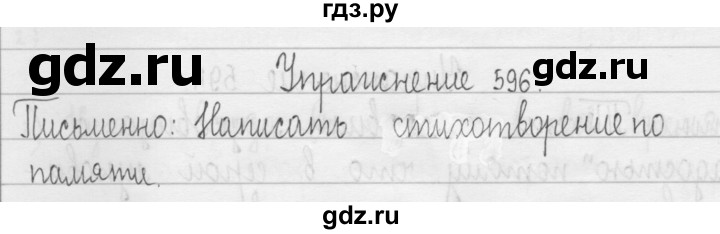 гдз.ру
Упражнение 596.
Письменно: Написать стихотворение по
памяти.
gdz.ru
gdz.ru